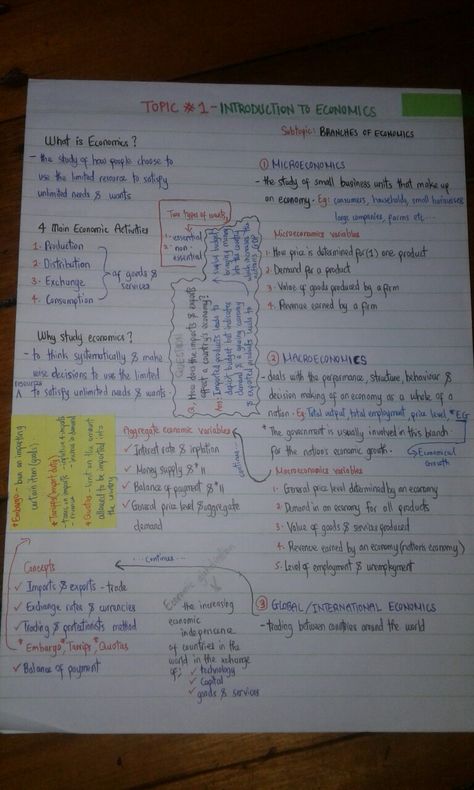 TOPIC #1 - INTRODUCTION TO ECONOMICS
What is Economics?
- the study of how people choose to
use the limited resource to satisfy
unlimited needs & wants
4 Main Economic Activities
1. Production
2. Distribution
3. Exchange
4. Consumption
of goods &
services
Two types of wants
1. essential
2. non-
essential
Why study economics?
- to think systematically & make
wise decisions to use the limited
resources
^ to satisfy unlimited needs & wants.
Q. How does the imports & exports
affect a country's economy?
Ans: Imported products leads to
deficit budget
& exported products leads to
* Embargo - ban on importing
certain item (goods)
* Quotas - limit on the amount
allowed to be imported into
the country
Aggregate economic variables
✓ Interest rate & inflation
✓ Money supply & "
✓ Balance of payment & "
✓ General price level & aggregate
demand
continue
Concepts
... continue ...
✓ Imports & exports - trade
✓ Exchange rates & currencies
✓ Trading & protectionists method
* Embargo, * Tariffs, * Quotas
✓ Balance of payment
Economic globalisation
the increasing
economic
indepence
of countries in the
world in the xchange
of:
✓ technology
✓ Capital
✓ goods & services
Subtopic: BRANCHES OF ECONOMICS
① MICROECONOMICS
- the study of small business units that make up
an economy. Eg: consumers, households, small businesses,
large companies, farms etc...
Microeconomics variables
1. How price is determined for (1) one product
2. Demand for a product
3. Value of goods produced by a firm
4. Revenue earned by a firm
② MACROECONOMICS
- deals with the performance, structure, behaviour &
decision making of an economy as a whole of a
nation. Eg: Total output, total employment, price level, * EG
* The government is usually involved in this branch
for the nation's economic growth.
Economical
Growth
Macroeconomics variables
1. General price level determined by an economy
2. Demand in an economy for all products
3. Value of goods & services produced
4. Revenue earned by an economy (nation's economy)
5. Level of employment & unemployment
③ GLOBAL/INTERNATIONAL ECONOMICS
- trading between countries around the world